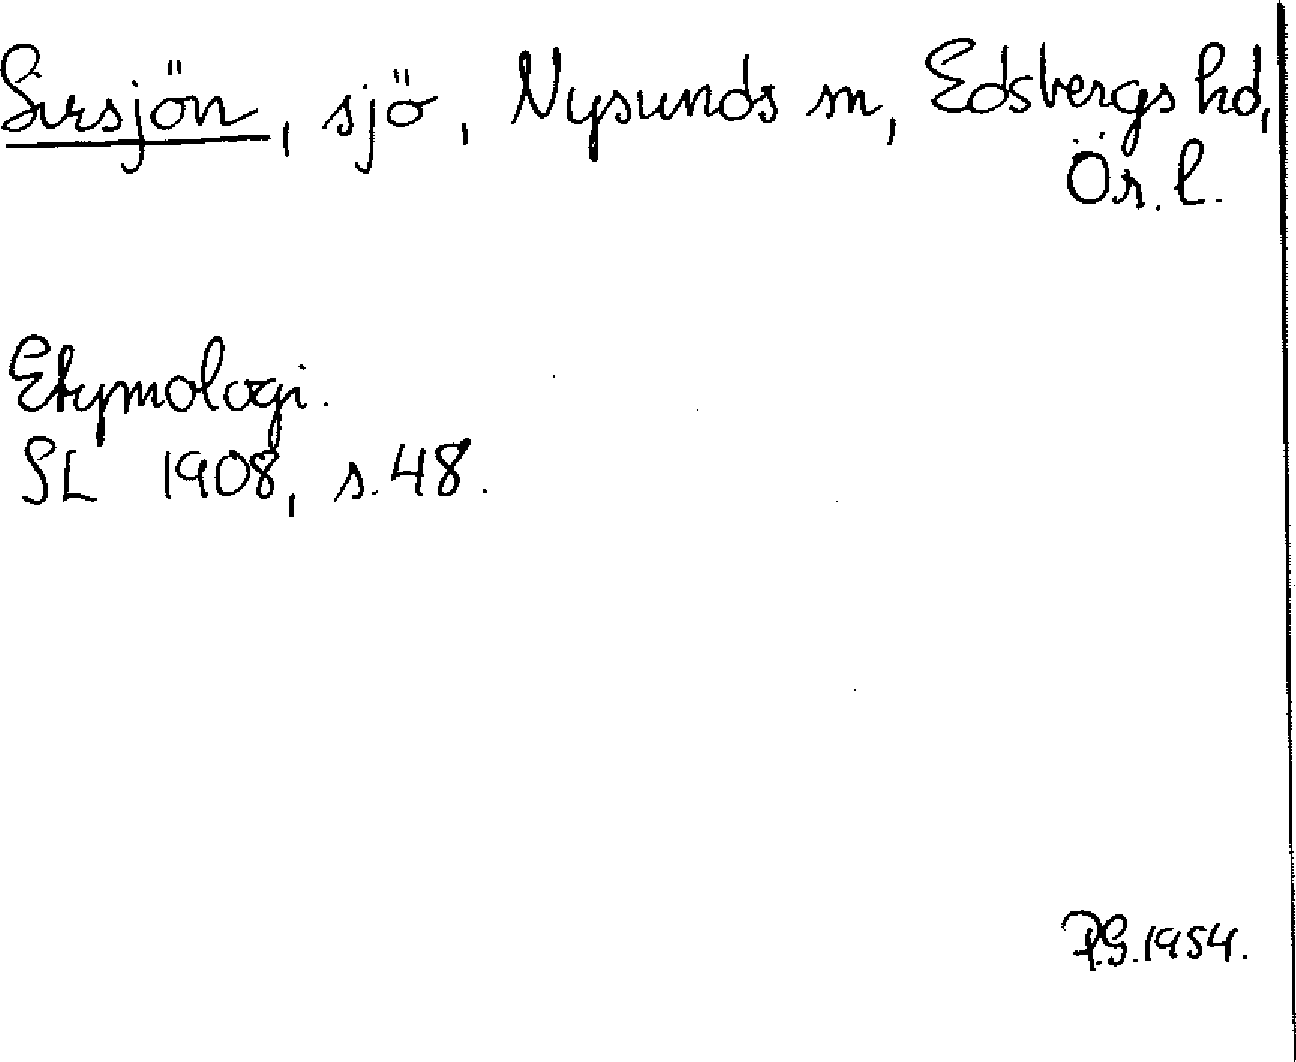 Sirsjön, sjö, Nysunds sn, Edsbergs hd,
Ör. l.
Etymologi.
SL 1908, s. 48.
P.G. 1954.